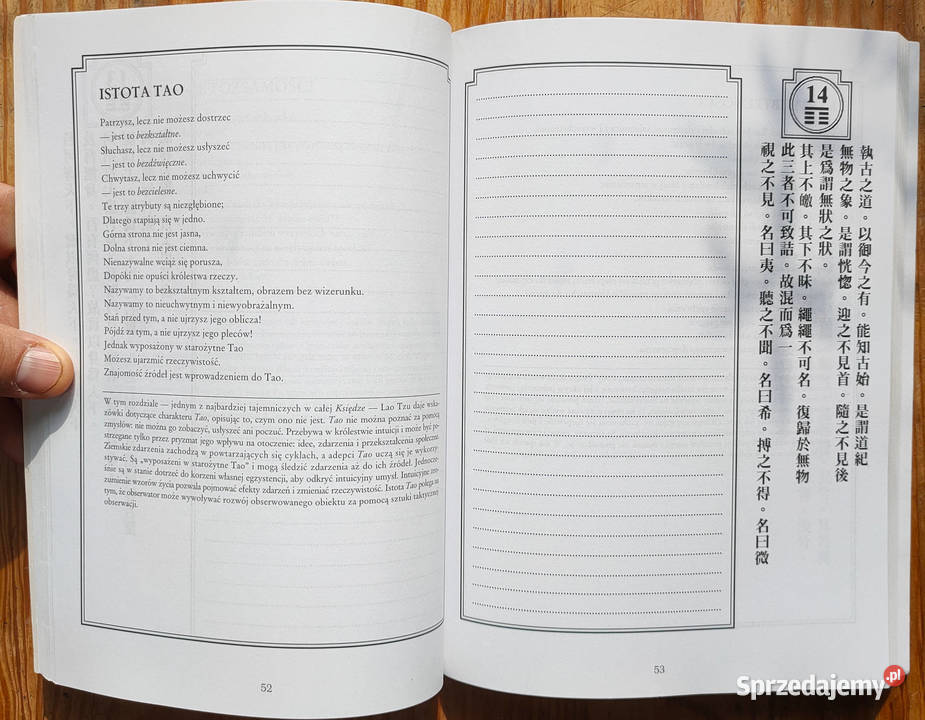 ISTOTA TAO
Patrzysz, lecz nie możesz dostrzec
— jest to bezkształtne.
Słuchasz, lecz nie możesz usłyszeć
— jest to bezdźwięczne.
Chwytasz, lecz nie możesz uchwycić
— jest to bezcielesne.
Te trzy atrybuty są niezgłębione;
Dlatego stapiają się w jedno.
Górna strona nie jest jasna,
Dolna strona nie jest ciemna.
Nienazywalne wciąż się porusza,
Dopóki nie opuści królestwa rzeczy.
Nazywamy to bezkształtnym kształtem, obrazem bez wizerunku.
Nazywamy to nieuchwytnym i niewyobrażalnym.
Stań przed tym, a nie ujrzysz jego oblicza!
Pójdź za tym, a nie ujrzysz jego pleców!
Jednak wyposażony w starożytne Tao
Możesz ujarzmić rzeczywistość.
Znajomość źródeł jest wprowadzeniem do Tao.
W tym rozdziale — jednym z najbardziej tajemniczych w całej Księdze — Lao Tzu daje wska-
zówki dotyczące charakteru Tao, opisując to, czym ono nie jest. Tao nie można poznać za pomocą
zmysłów: nie można go zobaczyć, usłyszeć ani poczuć. Przebywa w królestwie intuicji i może być po-
strzegane tylko przez pryzmat jego wpływu na otoczenie: idee, zdarzenia i przekształcenia społeczne.
Ziemskie zdarzenia zachodzą w powtarzających się cyklach, a adepci Tao uczą się je wykorzy-
stywać. Są „wyposażeni w starożytne Tao" i mogą śledzić zdarzenia aż do ich źródeł. Jednocze-
śnie są w stanie dotrzeć do korzeni własnej egzystencji, aby odkryć intuicyjny umysł. Intuicyjne zro-
zumienie wzorów życia pozwala pojmować efekty zdarzeń i zmieniać rzeczywistość. Istota Tao polega na
tym, że obserwator może wywoływać rozwój obserwowanego obiektu za pomocą sztuki taktycznej
obserwacji.
52
14
視之不見。名曰夷。聽之不聞。名曰希。搏之不得。名曰微
此三者不可致詰。故混而爲一
其上不皦。其下不昧。繩繩不可名。復歸於無物
是爲謂無狀之狀。
無物之象。是謂恍惚。迎之不見首。隨之不見後
執古之道。以御今之有。能知古始。是謂道紀
53
Sprzedajemy.pl